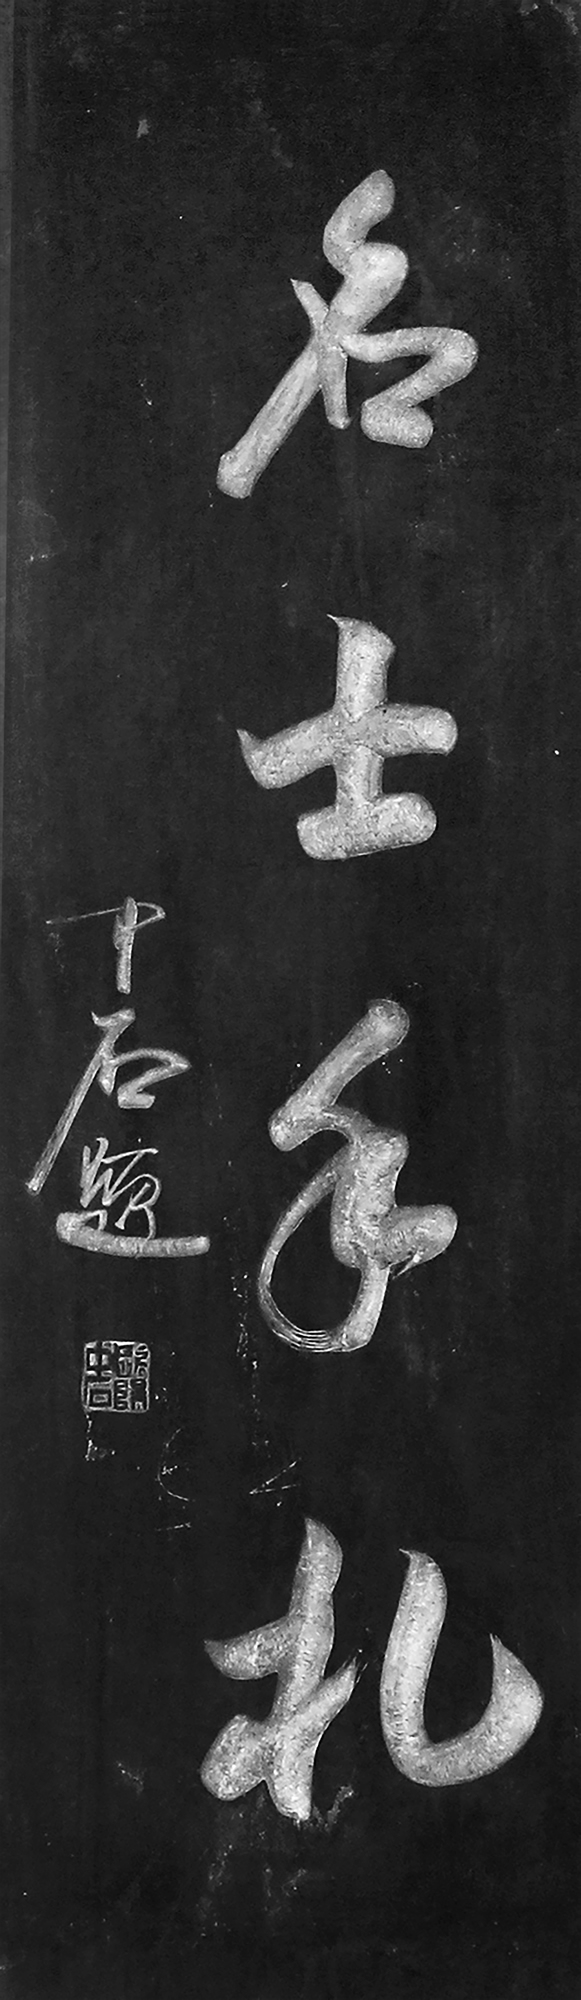 名士手札
中石题